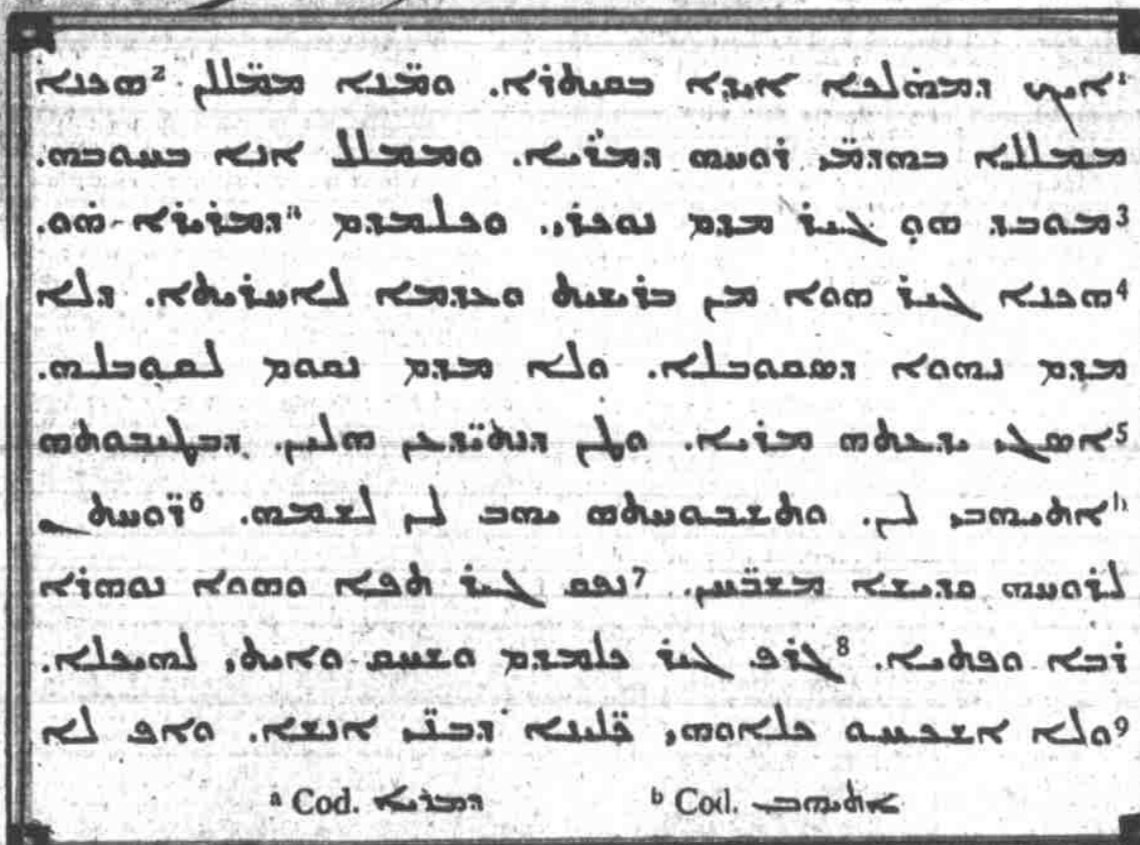 ¹ܐܝܟ ܕܡܗܠܟܐ ܐܝܕܐ ܒܩܝܬܪܐ. ܘܩܢ̈ܐ ܡܡ̈ܠܠܢ ²ܗܟܢܐ
ܡܡܠܠܐ ܒܗܕܡ̈ܝ ܪܘܚܗ ܕܡܪ̈ܝܐ. ܘܡܡܠܠ ܐܢܐ ܒܚܘܒܗ.
³ܡܘܒܕ ܗܘ ܓܝܪ ܡܕܡ ܢܘܟܪܝ. ܘܟܠܡܕܡ ᵃܕܡܪܝܪܐ ܗܘ.
⁴ܗܟܢܐ ܓܝܪ ܗܘܐ ܡܢ ܒܪܫܝܬ ܘܥܕܡܐ ܠܐܚܪܝܬܐ. ܕܠܐ
ܡܕܡ ܢܗܘܐ ܕܣܩܘܒܠܐ. ܘܠܐ ܡܕܡ ܢܩܘܡ ܠܩܘܒܠܗ.
⁵ܐܣܓܝ ܝܕܥܬܗ ܡܪܝܐ. ܘܛܢ ܕܢܬܝܕ̈ܥܢ ܗܠܝܢ. ܕܒܛܝܒܘܬܗ
ᵇܐܬܝܗܒܝ ܠܢ. ܘܬܫܒܘܚܬܗ ܝܗܒ ܠܢ ܠܫܡܗ. ⁶ܪ̈ܘܚܬܢ
ܠܪܘܚܗ ܩܕܝܫܐ ܡܫܒ̈ܚܢ. ⁷ܢܦܩ ܓܝܪ ܬܦܐ ܘܗܘܐ ܢܗܪܐ
ܪܒܐ ܘܦܬܝܐ. ⁸ܓܪܦ ܓܝܪ ܟܠܡܕܡ ܘܫܚܩ ܘܐܝܬܝ ܠܗܝܟܠܐ.
⁹ܘܠܐ ܐܫܟܚܘ ܟܠܐܘܗܝ ܟ̈ܠܝܢܐ ܕܒܢ̈ܝ ܐܢܫܐ. ܘܐܦ ܠܐ
ᵃ Cod. ܕܡܪܝܐ ᵇ Cod. ܐܬܝܗܒ